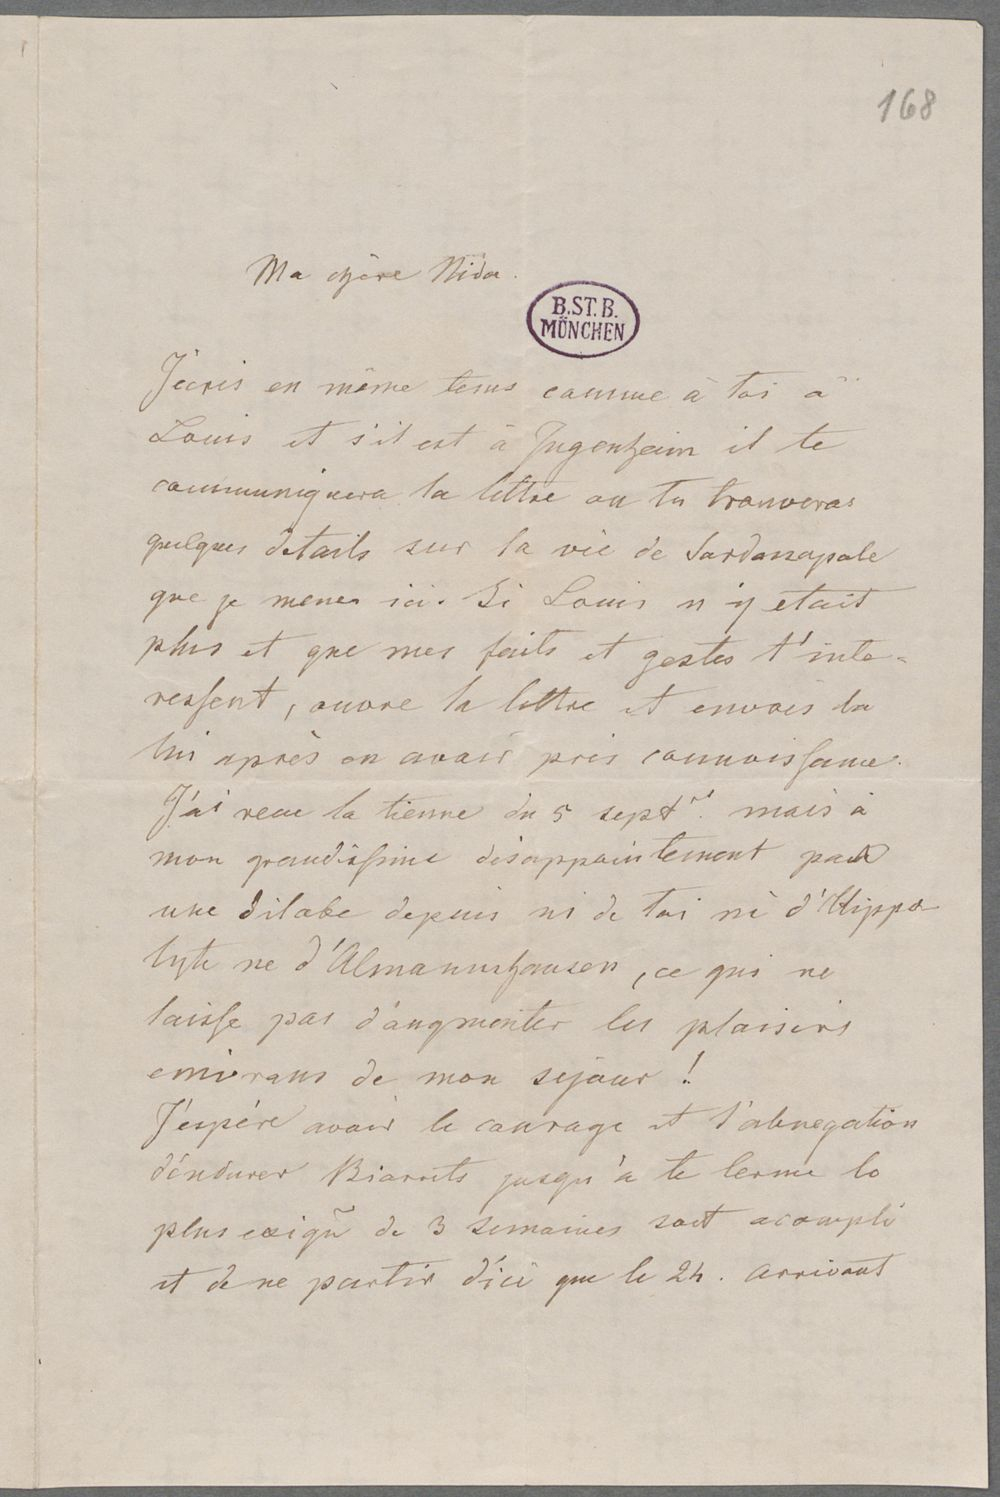 168
Ma chère Nida.
B.ST.B.
MÜNCHEN
J'écris en même tems comme à toi à
Louis et s'il est à Jugenheim il te
communiquera la lettre ou tu trouveras
quelques details sur la vie de Sardanapale
que je mene ici. Si Louis n'y etait
plus et que mes faits et gestes t'inte-
ressent, ouvre la lettre et envois la
lui après en avoir pris connoissance.
J'ai recu la tienne du 5 sept. mais à
mon grandissime désappointement pas
une silabe depuis ni de toi ni d'Hippo
lyte ne d'Almannshausen, ce qui ne
laisse pas d'augmenter les plaisirs
enivrans de mon sejour!
J'espére avoir le courage et l'abnegation
d'éndurer Biarrits jusqu'à te terme le
plus exigu de 3 semaines soit acompli
et de ne partir d'ici que le 24. arrivant